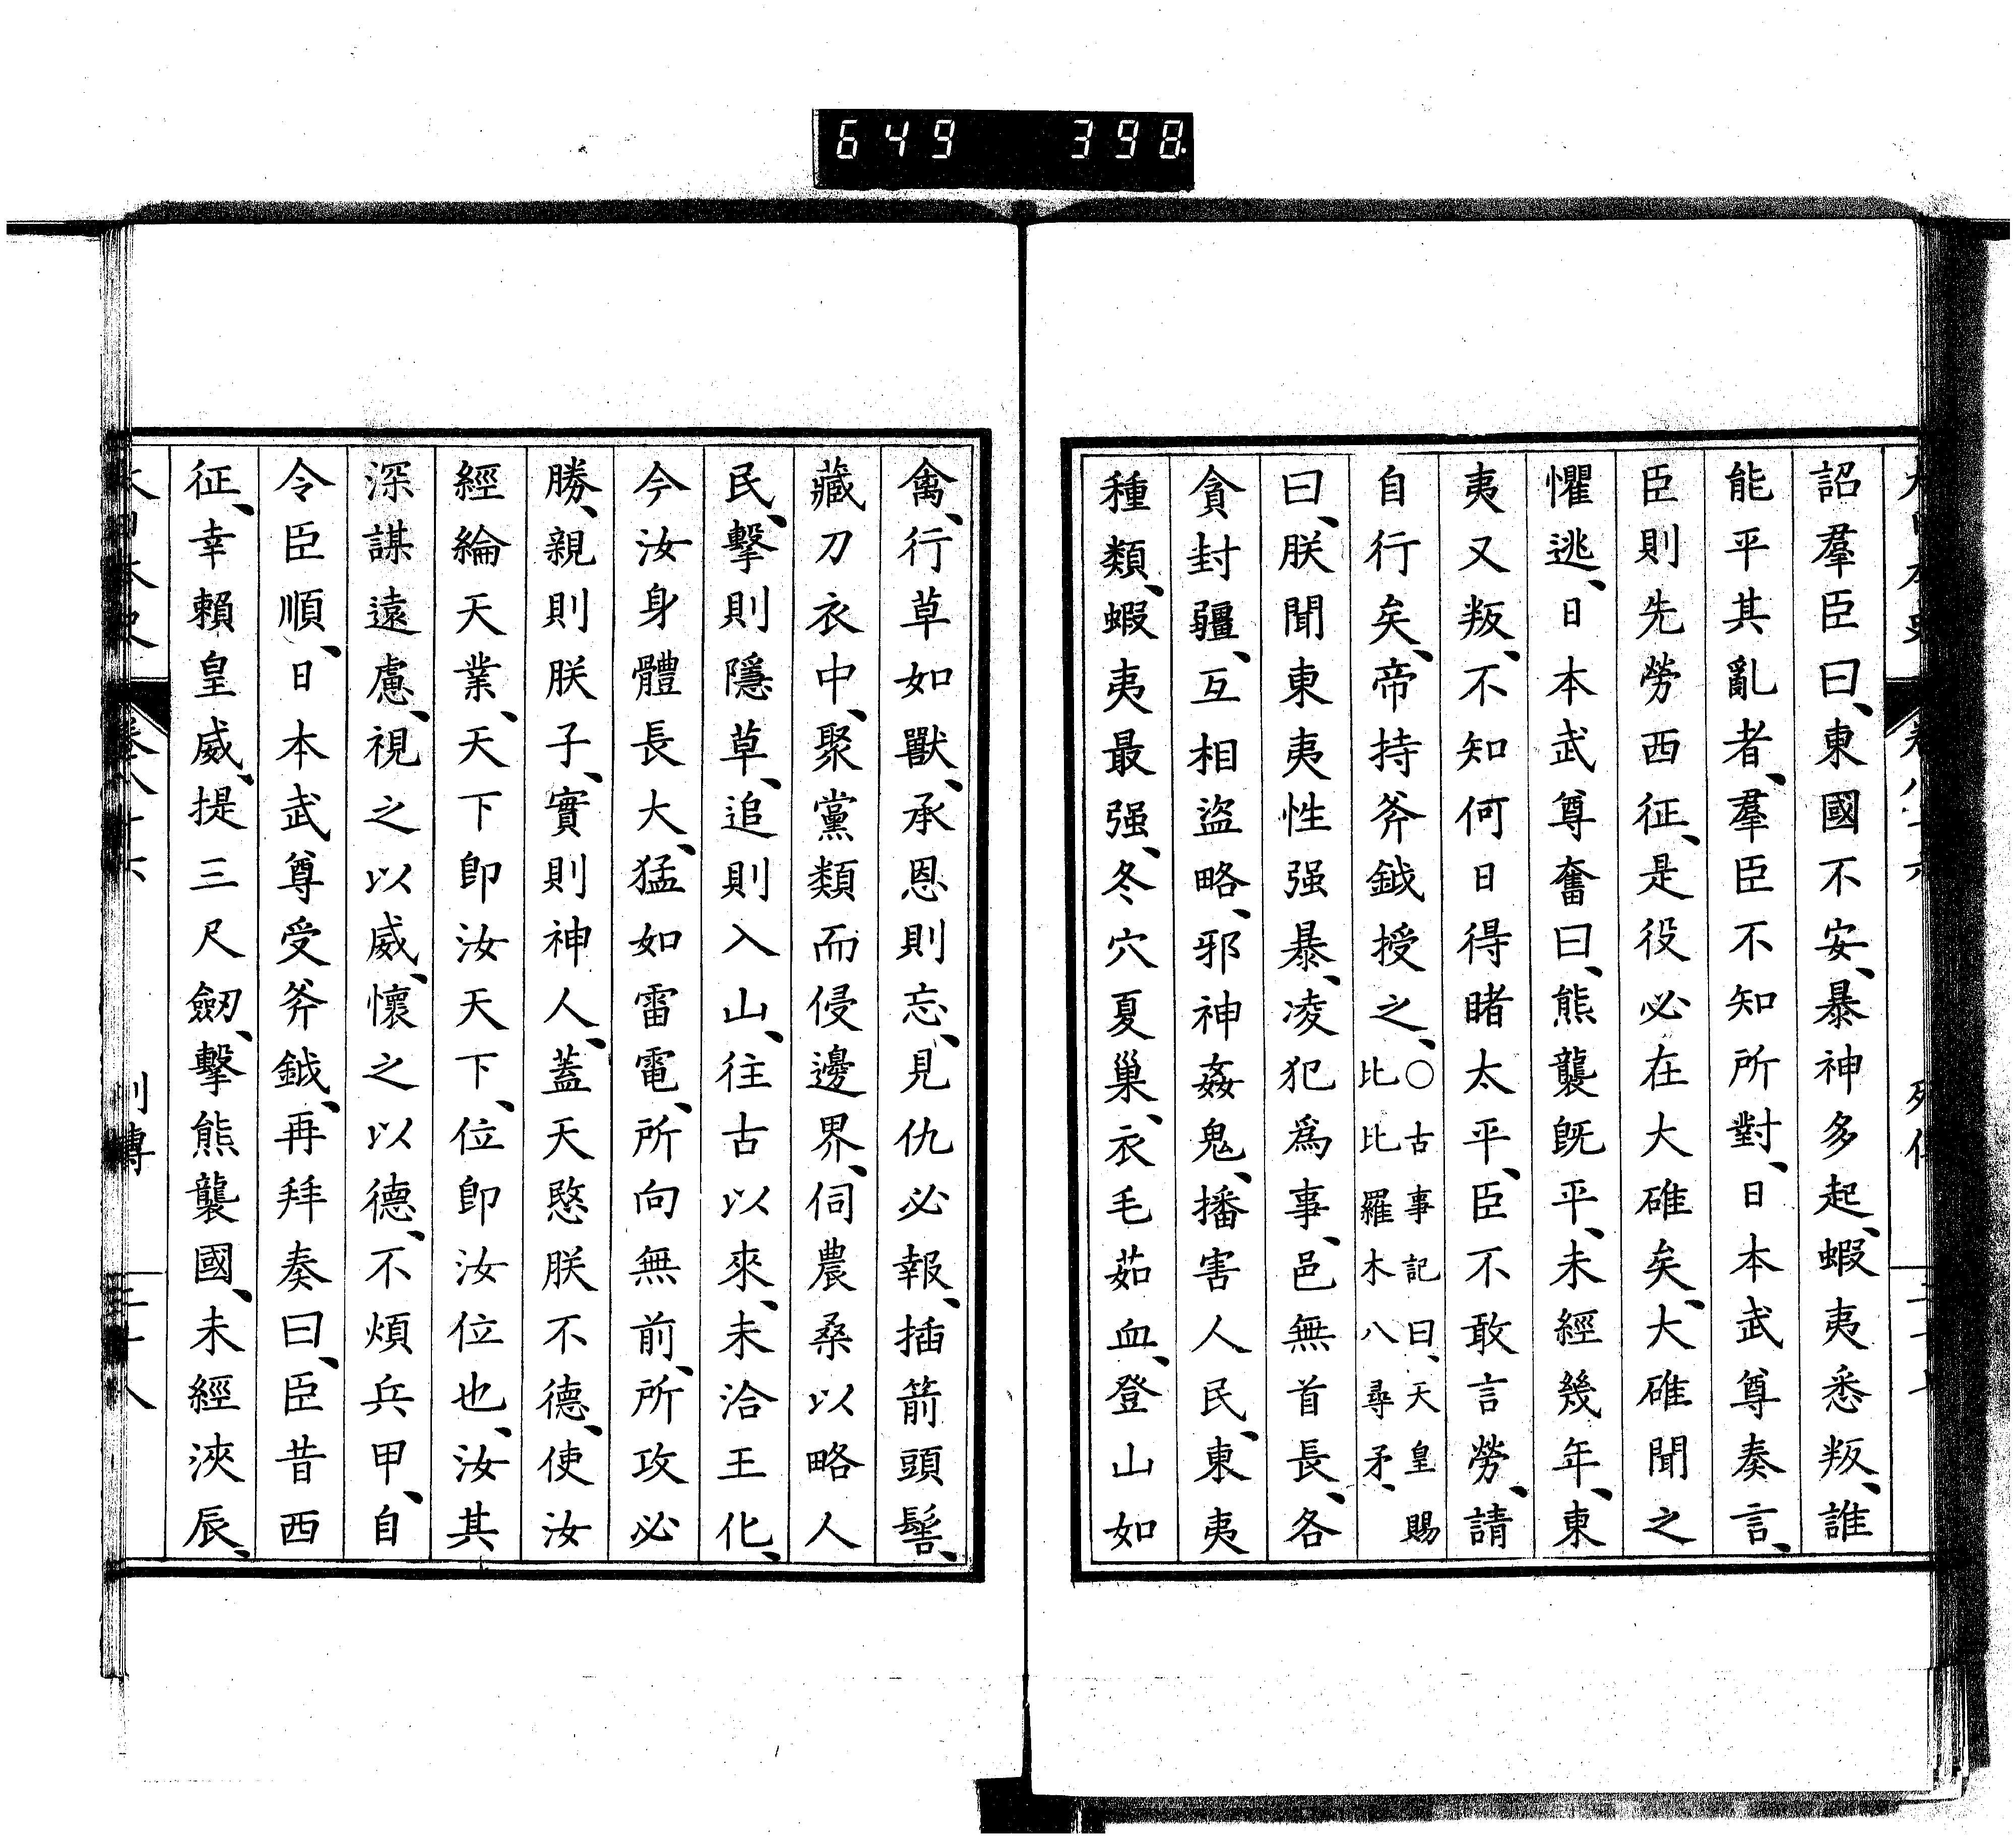 649 398
詔羣臣曰、東國不安、暴神多起、蝦夷悉叛、誰
能平其亂者、羣臣不知所對、日本武尊奏言、
臣則先勞西征、是役必在大碓矣、大碓聞之
懼逃、日本武尊奮曰、熊襲既平、未經幾年、東
夷又叛、不知何日得睹太平、臣不敢言勞、請
自行矣、帝持斧鉞授之、○古事記曰、天皇賜
比比羅木八尋矛、
曰、朕聞東夷性强暴、凌犯爲事、邑無首長、各
貪封疆、互相盜略、邪神姦鬼、播害人民、東夷
種類、蝦夷最强、冬穴夏巢、衣毛茹血、登山如
禽、行草如獸、承恩則忘、見仇必報、插箭頭髻、
藏刀衣中、聚黨類而侵邊界、伺農桑以略人
民、擊則隱草、追則入山、往古以來、未洽王化、
今汝身體長大、猛如雷電、所向無前、所攻必
勝、親則朕子、實則神人、蓋天愍朕不德、使汝
經綸天業、天下卽汝天下、位卽汝位也、汝其
深謀遠慮、視之以威、懷之以德、不煩兵甲、自
令臣順、日本武尊受斧鉞、再拜奏曰、臣昔西
征、幸賴皇威、提三尺劒、擊熊襲國、未經浹辰、